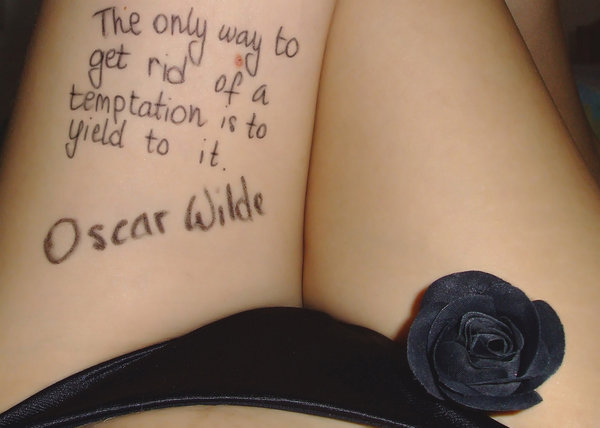 The only way to
get rid of a
temptation is to
yield to it.
Oscar Wilde